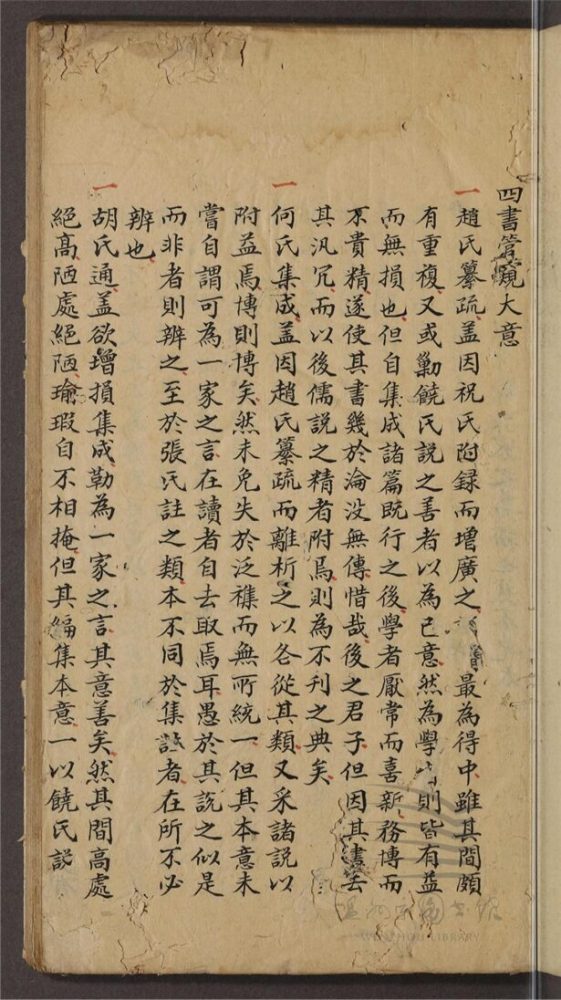 四書管窺大意
一趙氏纂疏盖因祝氏附録而增廣之最為得中雖其間頗
有重複又或勦饒氏說之善者以為已意然為學者則皆有益
而無損也但自集成諸篇既行之後學者厭常而喜新務博而
不貴精遂使其書幾於淪没無傳惜哉後之君子但因其書去
其汎冗而以後儒說之精者附焉則為不刊之典矣
一何氏集成盖因趙氏纂疏而離析之以各從其類又采諸説以
附益焉博則博矣然未免失於泛襍而無所統一但其本意未
嘗自謂可為一家之言在讀者自去取焉耳愚於其說之似是
而非者則辨之至於張氏註之類本不同於集註者在所不必
辨也
一胡氏通盖欲增損集成勒為一家之言其意善矣然其間高處
絕高陋處絕陋瑜瑕自不相掩但其編集本意一以饒氏說
WENZHOU LIBRARY